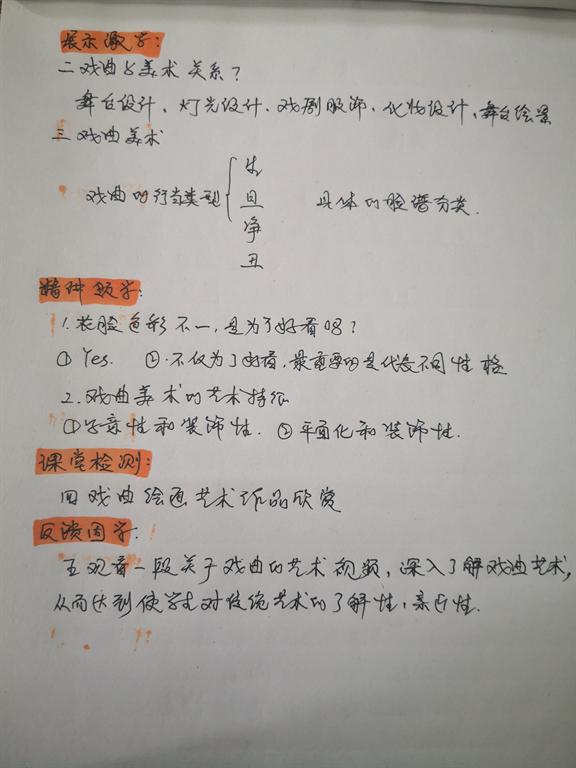 展示激学:
二 戏曲与美术关系?
舞台设计、灯光设计、戏剧服饰、化妆设计、舞台绘景
三 戏曲美术
生
戏曲的行当类型 旦 具体的脸谱分类.
净
丑
精种领学:
1. 花脸色彩不一,是为了好看吗?
① Yes. ② 不仅为了好看,最重要的是代表不同性格
2. 戏曲美术的艺术特征
① 写意性和装饰性. ② 平面化和装饰性.
课堂检测:
四 戏曲绘画艺术作品欣赏
反馈固学:
五 观看一段关于戏曲的艺术视频,深入了解戏曲艺术,
从而达到使学生对传统艺术的了解性,亲近性.